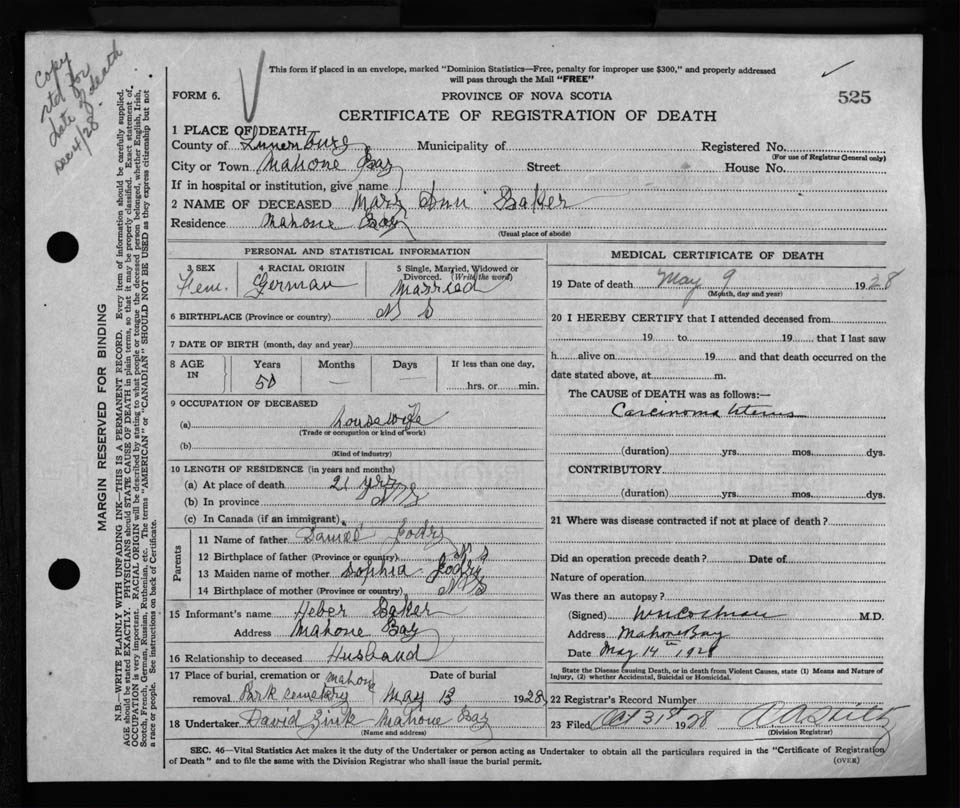 Copy
std for
date of death
Dec 4/28
This form if placed in an envelope, marked "Dominion Statistics—Free, penalty for improper use $300," and properly addressed
will pass through the Mail "FREE"
FORM 6. PROVINCE OF NOVA SCOTIA 525
CERTIFICATE OF REGISTRATION OF DEATH
1 PLACE OF DEATH
County of Lunenburg Municipality of Registered No.
(For use of Registrar General only)
City or Town Mahone Bay Street House No.
If in hospital or institution, give name
2 NAME OF DECEASED Mary Ann Baker
Residence Mahone Bay
(Usual place of abode)
MARGIN RESERVED FOR BINDING
N.B.—WRITE PLAINLY WITH UNFADING INK—THIS IS A PERMANENT RECORD. Every item of information should be carefully supplied.
AGE should be stated EXACTLY. PHYSICIANS should STATE CAUSE OF DEATH in plain terms, so that it may be properly classified. Exact statement of
OCCUPATION is very important. RACIAL ORIGIN will be described by stating to what people or tongue the deceased person belonged, whether English, Irish,
Scotch, French, German, Russian, Ruthenian, etc. The terms "AMERICAN" or "CANADIAN" SHOULD NOT BE USED as they express citizenship but not
a race or people. See instructions on back of Certificate.
PERSONAL AND STATISTICAL INFORMATION
3 SEX 4 RACIAL ORIGIN 5 Single, Married, Widowed or
Divorced. (Write the word)
Fem. German Married
6 BIRTHPLACE (Province or country) N S
7 DATE OF BIRTH (month, day and year)
8 AGE IN Years Months Days If less than one day,
50 — — hrs. or min.
9 OCCUPATION OF DECEASED
(a) Housewife
(Trade or occupation or kind of work)
(b)
(Kind of industry)
10 LENGTH OF RESIDENCE (in years and months)
(a) At place of death 21 yrs
(b) In province
(c) In Canada (if an immigrant)
Parents
11 Name of father
12 Birthplace of father (Province or country) N S
13 Maiden name of mother Sophia
14 Birthplace of mother (Province or country) N S
15 Informant's name Heber Baker
Address Mahone Bay
16 Relationship to deceased Husband
17 Place of burial, cremation or Mahone Date of burial
removal Park Cemetery May 13 1928
18 Undertaker David Zink Mahone Bay
(Name and address)
MEDICAL CERTIFICATE OF DEATH
19 Date of death May 9 1928
(Month, day and year)
20 I HEREBY CERTIFY that I attended deceased from
19 to 19 that I last saw
h alive on 19 and that death occurred on the
date stated above, at m.
The CAUSE of DEATH was as follows:—
Carcinoma Uterus
(duration) yrs. mos. dys.
CONTRIBUTORY
(duration) yrs. mos. dys.
21 Where was disease contracted if not at place of death?
Did an operation precede death? Date of
Nature of operation
Was there an autopsy?
(Signed) M.D.
Address Mahone Bay
Date May 14th 1928
State the Disease causing Death, or in death from Violent Causes, state (1) Means and Nature of
Injury, (2) whether Accidental, Suicidal or Homicidal.
22 Registrar's Record Number
23 Filed Oct 31st 1928
(Division Registrar)
SEC. 46—Vital Statistics Act makes it the duty of the Undertaker or person acting as Undertaker to obtain all the particulars required in the "Certificate of Registration
of Death" and to file the same with the Division Registrar who shall issue the burial permit. (OVER)